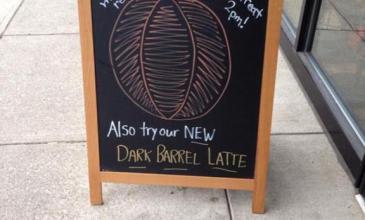 2pm!
Also try our NEW
DARK BARREL LATTE